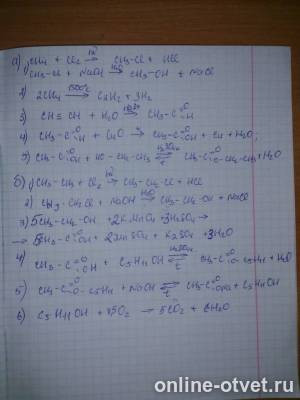 а) 1) CH4 + Cl2 hν→ CH3-Cl + HCl
CH3-Cl + NaOH H2O→ CH3-OH + NaCl
2) 2CH4 1500°C→ C2H2 + 3H2
3) CH≡CH + H2O → CH3-C=O H
4) CH3-C=O H + CuO t→ CH3-C=O OH + Cu + H2O;
5) CH3-C=O OH + HO-CH2-CH3 H2SO4⇄t CH3-C=O O-CH2-CH3 + H2O
б) 1) CH3-CH3 + Cl2 hν→ CH3-CH2-Cl + HCl
2) CH3-Cl + NaOH H2O→ CH3-CH2-OH + NaCl
3) 5CH3-CH2-OH + 2KMnO4 + 3H2SO4 →
→ 5CH3-C=O OH + 2MnSO4 + K2SO4 + 3H2O
4) CH3-C=O OH + C5H11OH H2SO4⇄t CH3-C=O O-C5H11 + H2O
5) CH3-C=O O-C5H11 + NaOH ⇄t CH3-C=O ONa + C5H11OH
6) C5H11OH + O2 → 5CO2 + 6H2O
online-otvet.ru